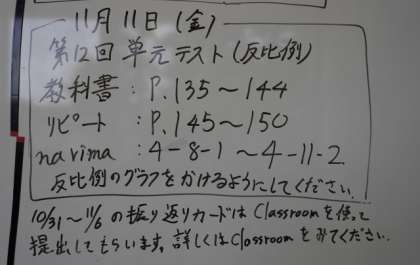 11月11日(金)
第12回 単元テスト(反比例)
教科書:P.135~144
リピート:P.145~150
narima:4-8-1~4-11-2
反比例のグラフをかけるようにしてください。
10/31~11/6 の振り返りカードは Classroomを使って
提出してもらいます。詳しくはClassroomをみてください。